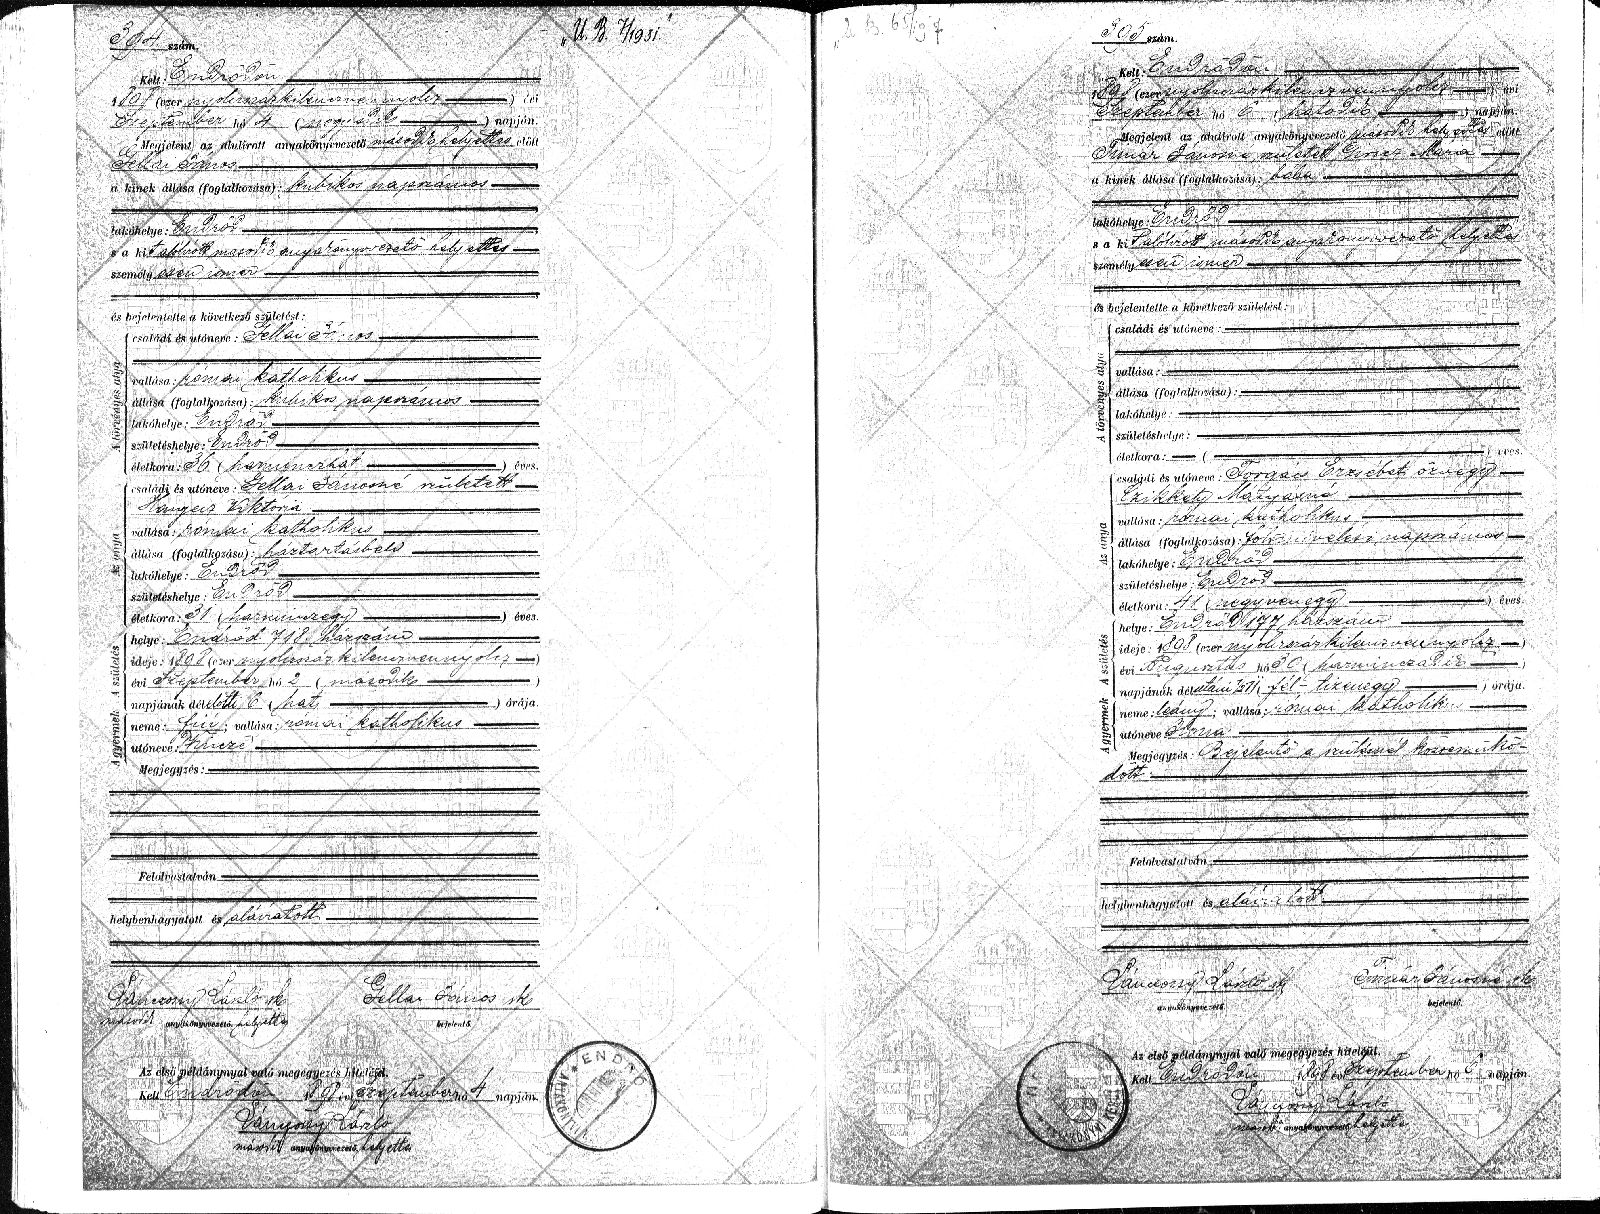 304 szám.
"U. B. 7/1931"
Kelt: Endrődön
1898 (ezer nyolczszázkilenczvennyolcz) évi
Szeptember hó 4 (negyedik) napján.
Megjelent az alulirott anyakönyvezető második helyettes előtt
Gellai János
a kinek állása (foglalkozása): kubikos napszámos
lakóhelye: Endrőd
s a kit alólirott második anyakönyvvezető helyettes
személyesen ismer
és bejelentette a következő születést:
A törvényes atya
családi és utóneve: Gellai János
vallása: római katholikus
állása (foglalkozása): kubikos napszámos
lakóhelye: Endrőd
születéshelye: Endrőd
életkora: 36 (harminczhat) éves.
Az anya
családi és utóneve: Gellai Jánosné született
Viktória
vallása: római katholikus
állása (foglalkozása): háztartásbeli
lakóhelye: Endrőd
születéshelye: Endrőd
életkora: 31 (harminczegy) éves.
A születés
helye: Endrőd 718. házszám
ideje: 1898 (ezer nyolczszázkilenczvennyolcz)
évi Szeptember hó 2 (második)
napjának délelőtti 6 (hat) órája.
A gyermek
neme: fiú; vallása: római katholikus
utóneve: Vincze
Megjegyzés:
Felolvastatván
helybenhagyatott és aláiratott
László sk Gellai János sk
második anyakönyvvezető. helyettes bejelentő.
Az első példánynyal való megegyezés hiteléül.
Kelt Endrődön 1898 évi szeptember hó 4 napján.
László
második anyakönyvvezető. helyettes
ENDRŐD
305 szám.
Kelt: Endrődön
1898 (ezer nyolczszázkilenczvennyolcz) évi
Szeptember hó 6 (hatodik) napján.
Megjelent az alulirott anyakönyvezető második helyettes előtt
Timár Jánosné született Mária
a kinek állása (foglalkozása): bába
lakóhelye: Endrőd
s a kit alólirott második anyakönyvvezető helyettes
személyesen ismer
és bejelentette a következő születést:
A törvényes atya
családi és utóneve:
vallása:
állása (foglalkozása):
lakóhelye:
születéshelye:
életkora: ( ) éves.
az anya
családi és utóneve: Forgács Erzsébet özvegy
Mátyásné
vallása: római katholikus
állása (foglalkozása): földmivelési napszámos
lakóhelye: Endrőd
születéshelye: Endrőd
életkora: 41 (negyvenegy) éves.
A születés
helye: Endrőd 177 házszám
ideje: 1898 (ezer nyolczszázkilenczvennyolcz)
évi Augusztus hó 30 (harminczadik)
napjának délutáni (fél tizenegy) órája.
A gyermek
neme: leány; vallása: római katholikus
utóneve
Megjegyzés: Bejelentő a szülésnél közreműkö-
dött.
Felolvastatván
helybenhagyatott és aláiratott
László sk Timár Jánosné sk
anyakönyvvezető. bejelentő.
Az első példánynyal való megegyezés hiteléül.
Kelt Endrődön 1898 évi szeptember hó 6 napján
László
második anyakönyvvezető. helyettes